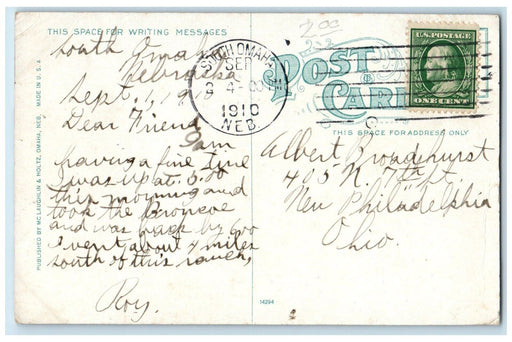 THIS SPACE FOR WRITING MESSAGES
South Omaha
Nebraska
Sept. 1, 19
Dear Friend
I am
having a fine time
I was up at 5:00
this morning and
took the Broncoe
and was back by 600
I went about 4 miles
south of this ranch,
Roy.
PUBLISHED BY MC LAUGHLIN & HOLTZ, OMAHA, NEB. MADE IN U.S.A.
SOUTH OMAHA
SEP
2
1910
NEB.
200
POST
CARD
U.S. POSTAGE
ONE CENT
THIS SPACE FOR ADDRESS ONLY
Albert Broadhurst
405 N. 7th St
New Philadelphia
Ohio.
14294